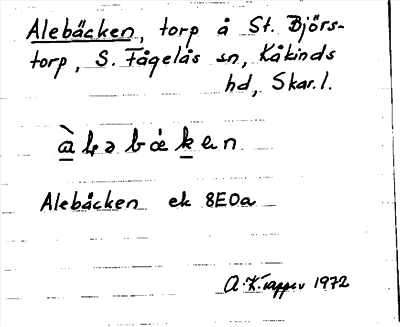 Alebäcken, torp å St. Björs-
torp, S. Fågelås sn, Kåkinds
hd, Skar. l.
Alebäcken ek 8E0a
1972